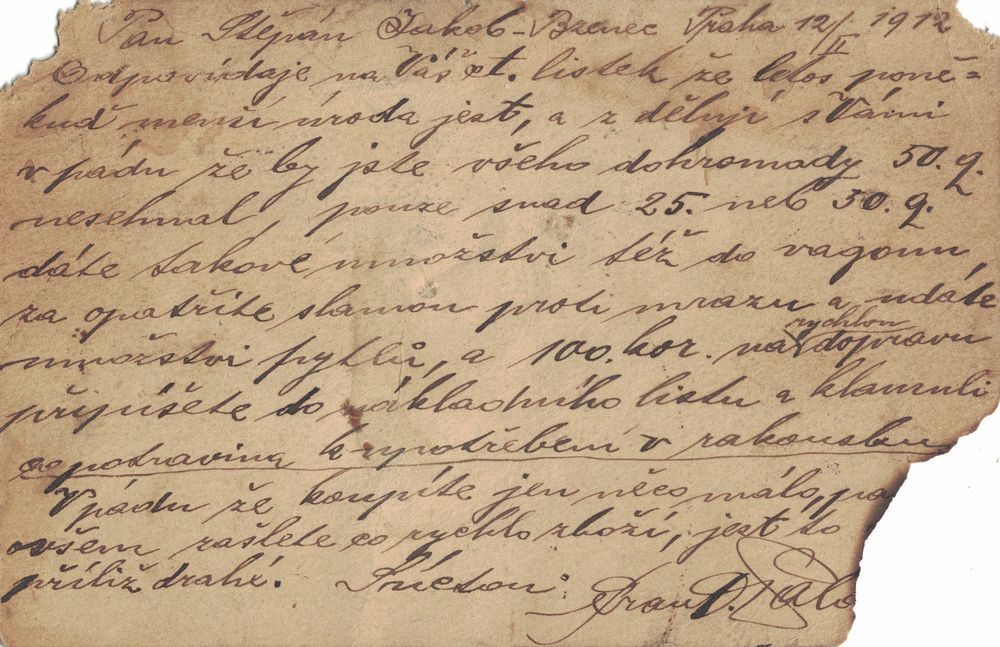 Pan Štěpán Jakob - Bzenec Praha 12/II 1912
Odpovídaje na Váš ct. lístek že letos poně=
kuď menší úroda jest, a z děluji s Vámi
v pádu že by jste všeho dohromady 50. q.
nesehnal, pouze snad 25. neb 30. q.
dáte takové množství též do vagonu,
za opatříte slamou proti mrazu a udáte
množství pytlů, a 100. kor. na rychlou dopravu
připíšete do nákladního listu a
co potravina k vypotřebení v rakousku
V pádu že koupíte jen něco málo, pa
ovšem zašlete co rychlo zboží, jest to
příliž drahé. S úctou: